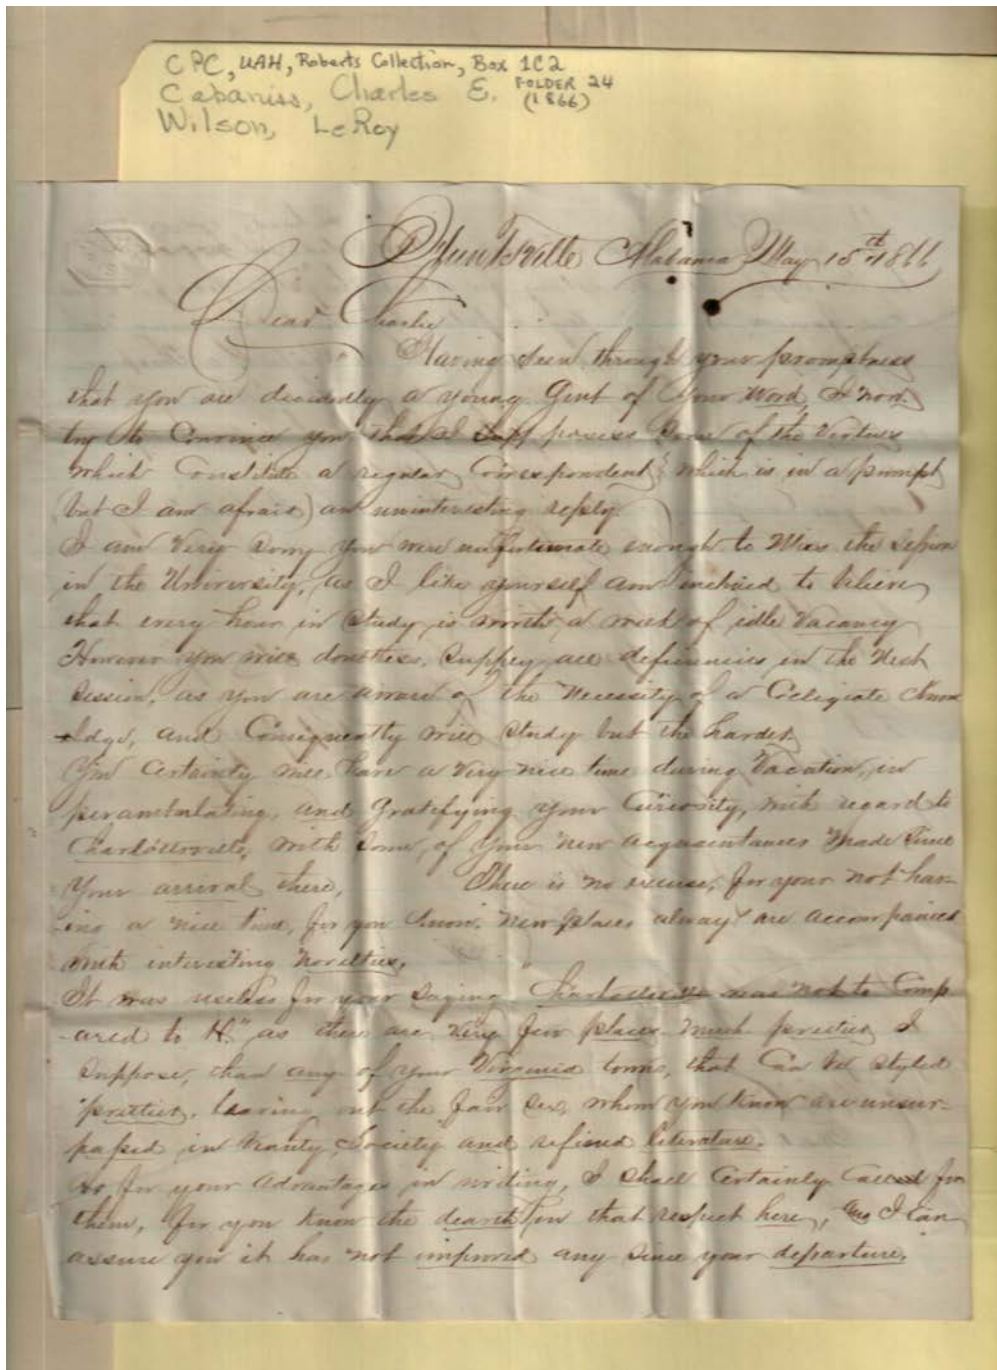 CPC, UAH, Roberts Collection, Box 1C2
Cabaniss, Charles E. FOLDER 24
(1866)
Wilson, LeRoy
Huntsville Alabama May 15th 1866
Dear Charlie
Having seen through your promptness
that you are decidedly a young Gent of your Word, I now
try to Convince you that I possess some of the Virtues
which Constitute a regular Correspondent, which is in a prompt
but I am afraid) an uninteresting reply.
I am Very Sorry you were unfortunate enough to Miss the Session
in the University, as I like yourself am inclined to believe
that every hour in Study is worth a week of idle Vacancy
However you will doubtless, Supply all deficiencies, in the Next
Session, as you are aware of the Necessity of a Collegiate Know
-ledge, and Consequently will Study but the harder.
You Certainly will have a Very nice time during Vacation, in
perambulating, and Gratifying your Curiosity, with regard to
Charlottesville, with Some, of your New acquaintances Made Since
Your arrival there. There is no excuse, for your not hav-
ing a nice time, for you know. New places always are accompanied
with interesting Novelties.
It was useless for your Saying Charlottesville was not to Comp
-ared to H" as there are Very few places much prettier, I
Suppose, than any of your Virginia towns, that Can be Styled
"prettier, leaving out the fair Sex, whom you know are unsur-
passed in beauty, Society and refined literature.
As for your advantages in writing, I shall Certainly for
them, for you know the dearth in that respect here, and I Can
assure you it has not improved any Since your departure.